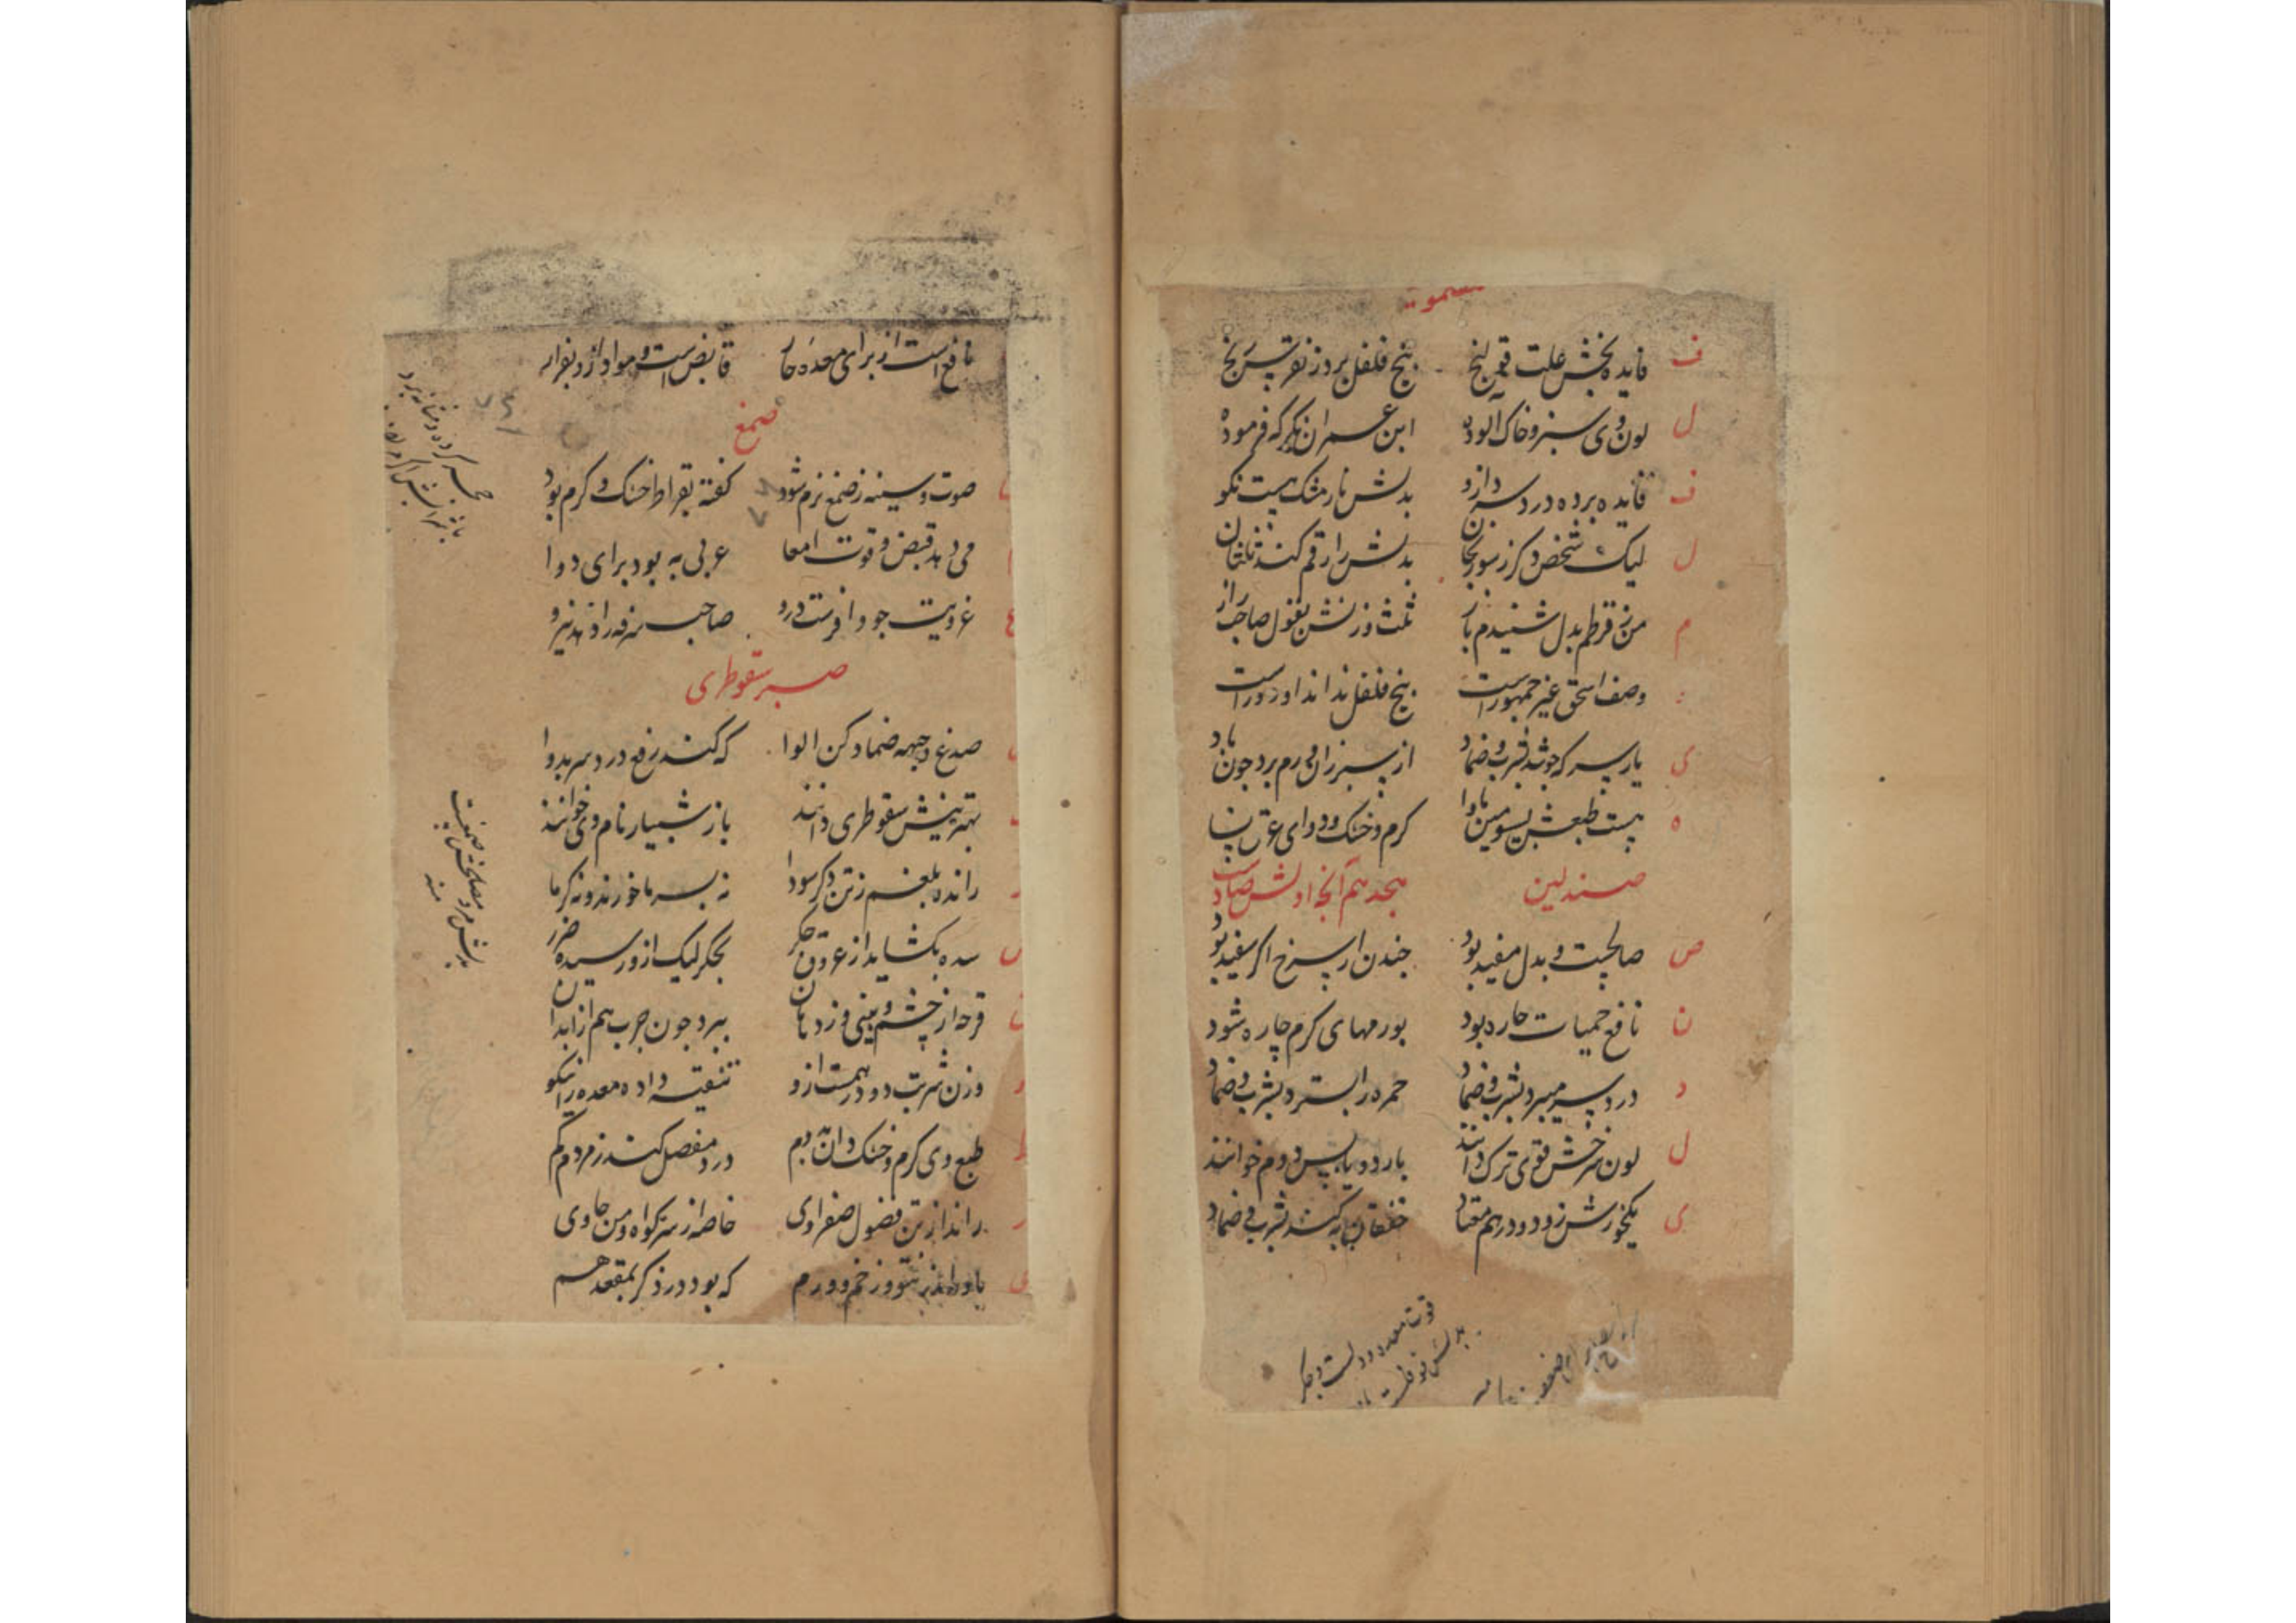 ف فایده بخش علت قولنج بیخ فلفل برد ز نقرس رنج
ل لون وی سبز و خاک آلوده ابن عمران نکر که فرموده
ف فایده برده درد سر دارو بدلش نارمشک هست نکو
ل لیک شخص دکر ز سورنجان بدلش را رقم کند ثلثان
م من ز قرطم بدل شنیدم باز ثلث وزنش بقول صاحب راز
وصف اسحق غیر جمهور است بیخ فلفل نداند او دور است
ی یار سرکه چو شد بشرب و ضماد از سپرز آن ورم برد چون باد
ه هست طبعش بسومین مأوا کرم و خشک و دوای عرق نسا
صندلین هجدهم آنجا اولش صاد است
ص صالحیت و بدل مفید بود چندن ار سرخ اکر سفید بود
ن نافع حمیات حاره بود بورمهای کرم چاره شود
د درد سر میبرد بشرب و ضماد حمره را بسترد بشرب و ضماد
ل لون سرخش قوی ترک دانند بارد و یابس دوم خوانند
ی یکخورش زو دو درهم معتاد خفقان به کند بشرب و ضماد
قوت معده و دلست و جکر
نافع است از برای معده حار قابض است و مواد ازو بفرار
صمغ
صوت و سینه ز صمغ نرم شود کفته بقراط خشک و کرم بود
می دهد قبض و قوت امعا عربی به بود برای دوا
ع غرویت چو وافرست درو صاحب سرفه را دهد نیرو
صبر سقوطری
صدغ و جبهه ضماد کن الوا که کند رفع درد سر بدوا
بهترینش سقوطری دانند باز شبیار نام وی خوانند
ر رانده بلغم ز تن دکر سودا نه بسرما خورند و نه کرما
س سده بکشاید از عروق جکر بجکر لیک ازو رسیده ضرر
ق قرحه از چشم و بینی و ز دهان ببرد چون جرب هم از ابدان
و وزن شربت دو درهمست ازو تنقیه داده معده را نیکو
ط طبع وی کرم و خشک دان بدوم درد مفصل کند ز مردم کم
ر راند از تن فضول صفراوی خاصه از سر کواه من حاوی
که بود در ذکر بمقعد هم